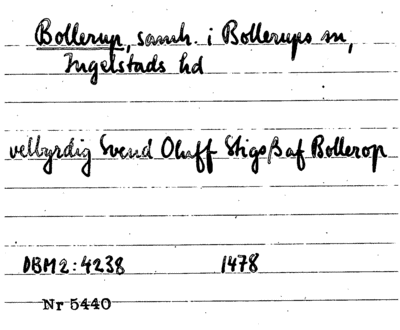 Bollerup, samh. i Bollerups sn,
Ingelstads hd
velbyrdig Svend Oluff Stigsß af Bollerop
DBM2:4238 1478
Nr 5440